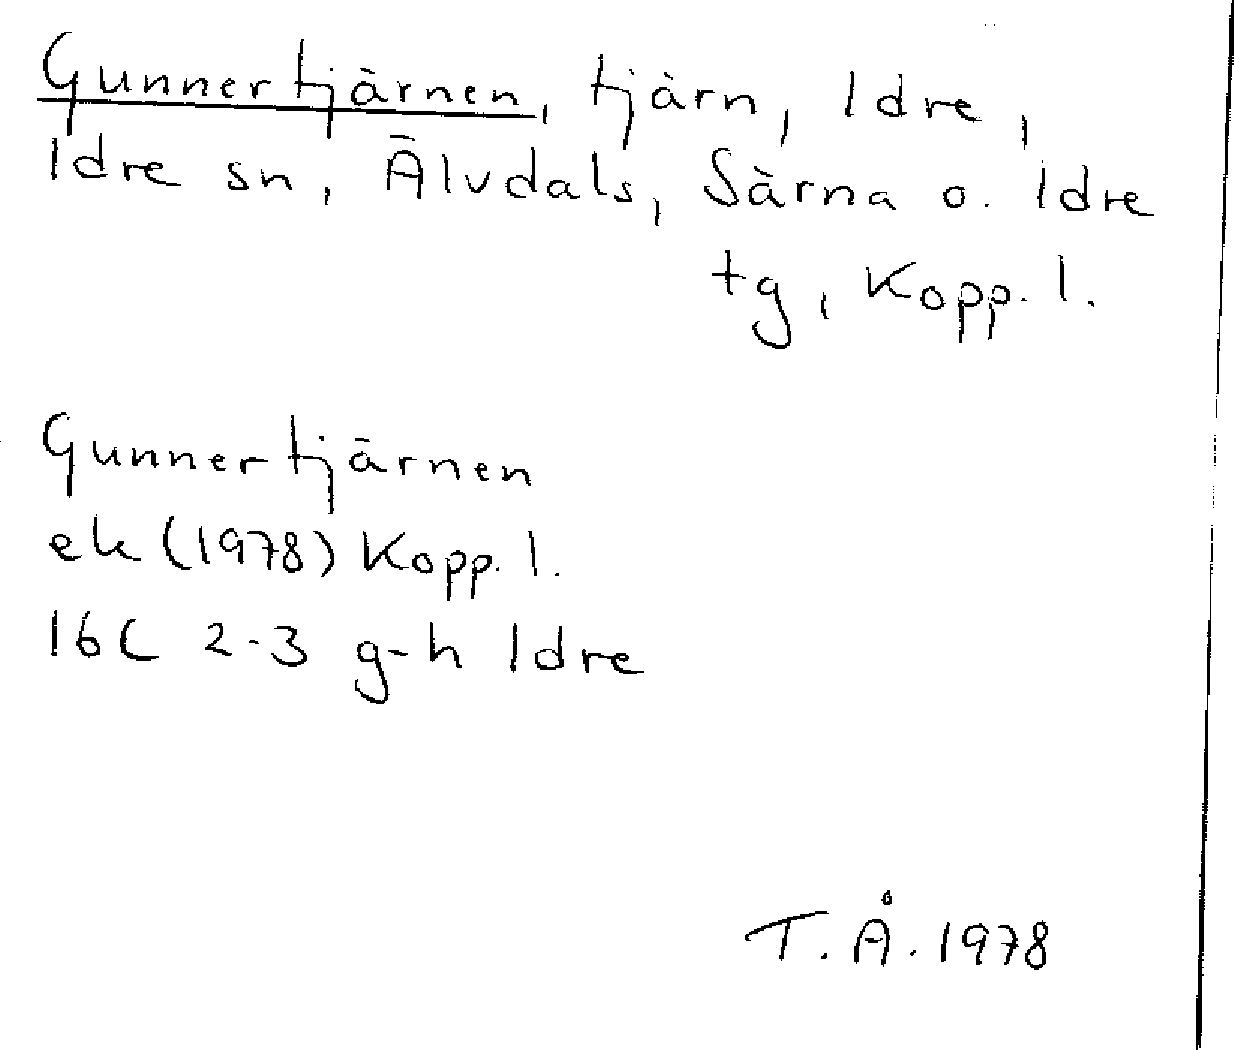 Gunnertjärnen, tjärn, Idre,
Idre sn, Älvdals, Särna o. Idre
tg, Kopp. l.
Gunnertjärnen
ek (1978) Kopp. l.
16C 2-3 g-h Idre
T. Å. 1978